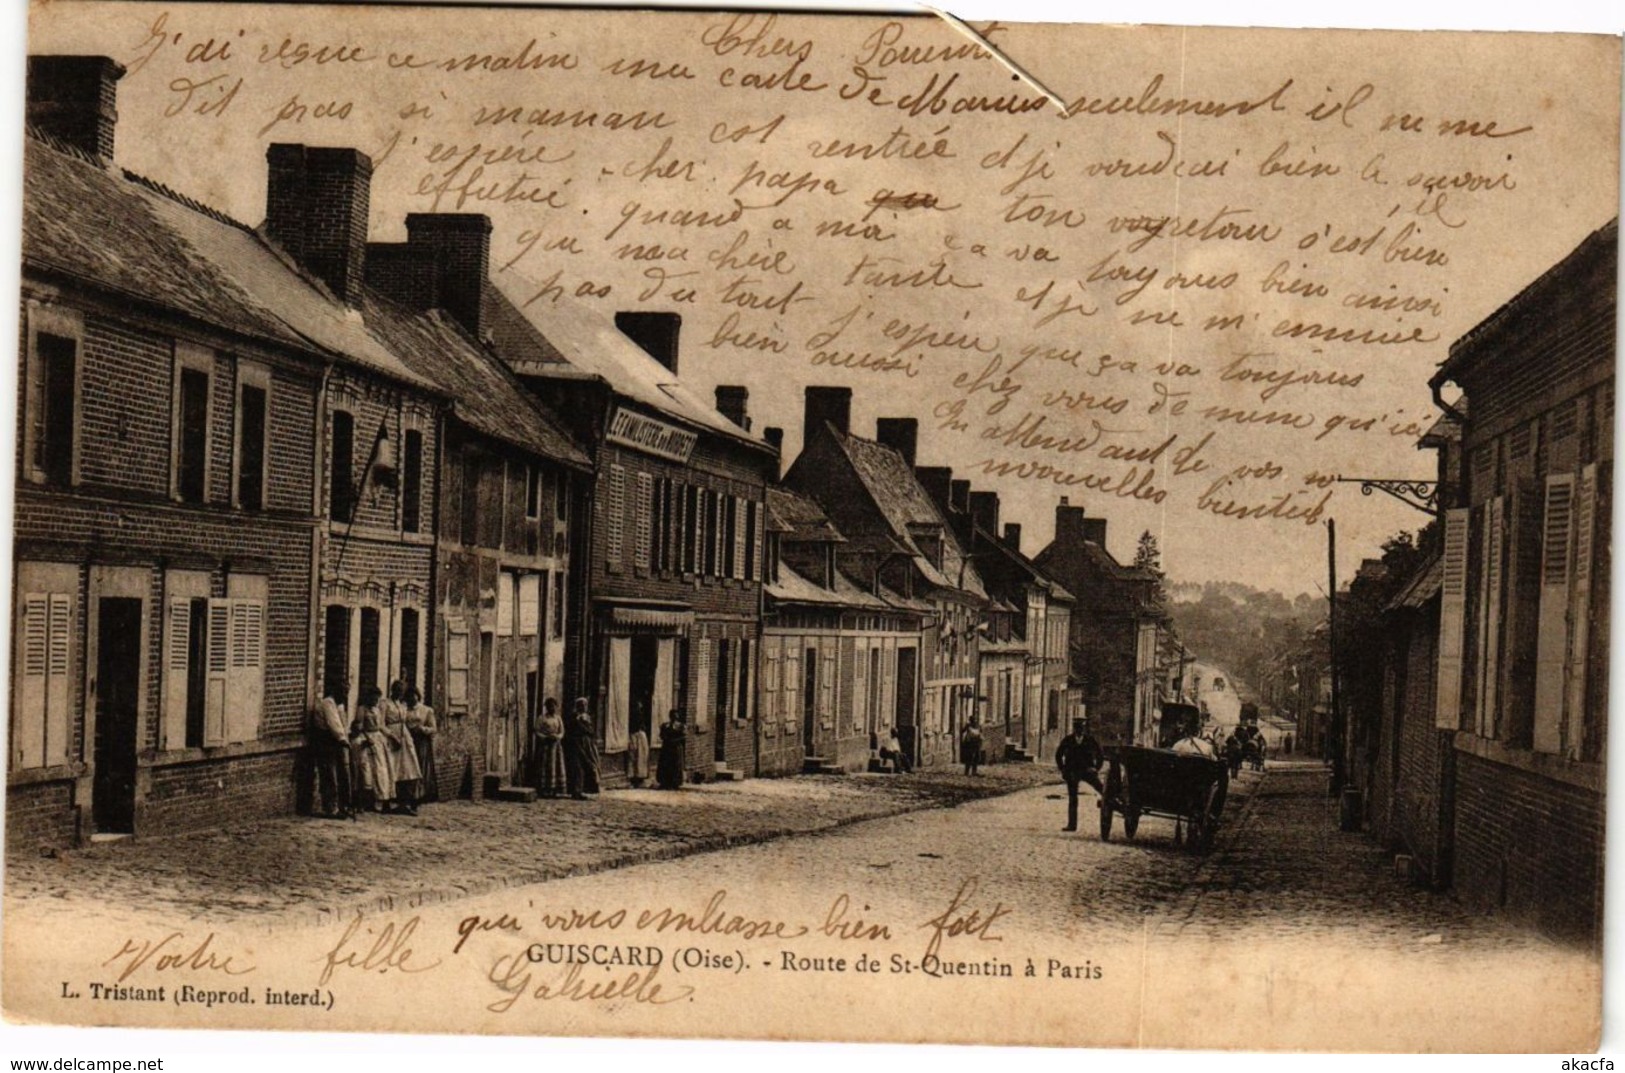 Chers Parents
J'ai reçue ce matin une carte de Marius seulement il ne me
dit pas si maman est rentrée et je voudrai bien le savoir
J'espére cher papa que ton retour s'est bien
effectué. quand a moi ça va toujours bien ainsi
que ma chère tante et je ne m'ennuie
pas du tout j'espère que ça va toujours
bien aussi chez vous de meme qu'ici
En attendant de vos
nouvelles bientôt
L'FAMILISTERE DU
Votre fille qui vous embrasse bien fort
Gabrielle.
GUISCARD (Oise). - Route de St-Quentin à Paris
L. Tristant (Reprod. interd.)
akacfa